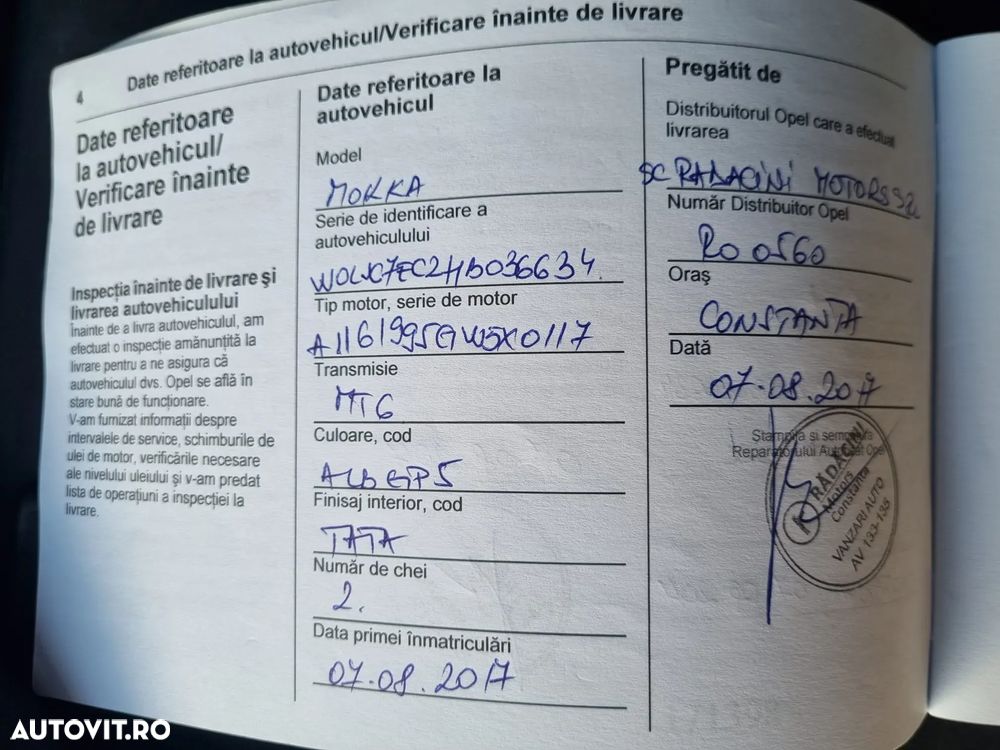 4
Date referitoare la autovehicul/Verificare înainte de livrare
Date referitoare
la autovehicul/
Verificare înainte
de livrare
Inspecția înainte de livrare și
livrarea autovehiculului
Înainte de a livra autovehiculul, am
efectuat o inspecție amănunțită la
livrare pentru a ne asigura că
autovehiculul dvs. Opel se află în
stare bună de funcționare.
V-am furnizat informații despre
intervalele de service, schimburile de
ulei de motor, verificările necesare
ale nivelului uleiului și v-am predat
lista de operațiuni a inspecției la
livrare.
Date referitoare la
autovehicul
Model
MOKKA
Serie de identificare a
autovehiculului
W0LJC7EC2HB036634
Tip motor, serie de motor
Transmisie
MT6
Culoare, cod
ALB GP5
Finisaj interior, cod
TATA
Număr de chei
2.
Data primei înmatriculări
07.08.2017
Pregătit de
Distribuitorul Opel care a efectuat
livrarea
SC RADACINI MOTORS SRL
Număr Distribuitor Opel
RO 0560
Oraș
CONSTANTA
Dată
07.08.2017
Ștampila și semnătura
Reparatorului Autorizat Opel
RĂDĂCINI
Motors
Constanta
VANZARI AUTO
AV 133-135
AUTOVIT.RO